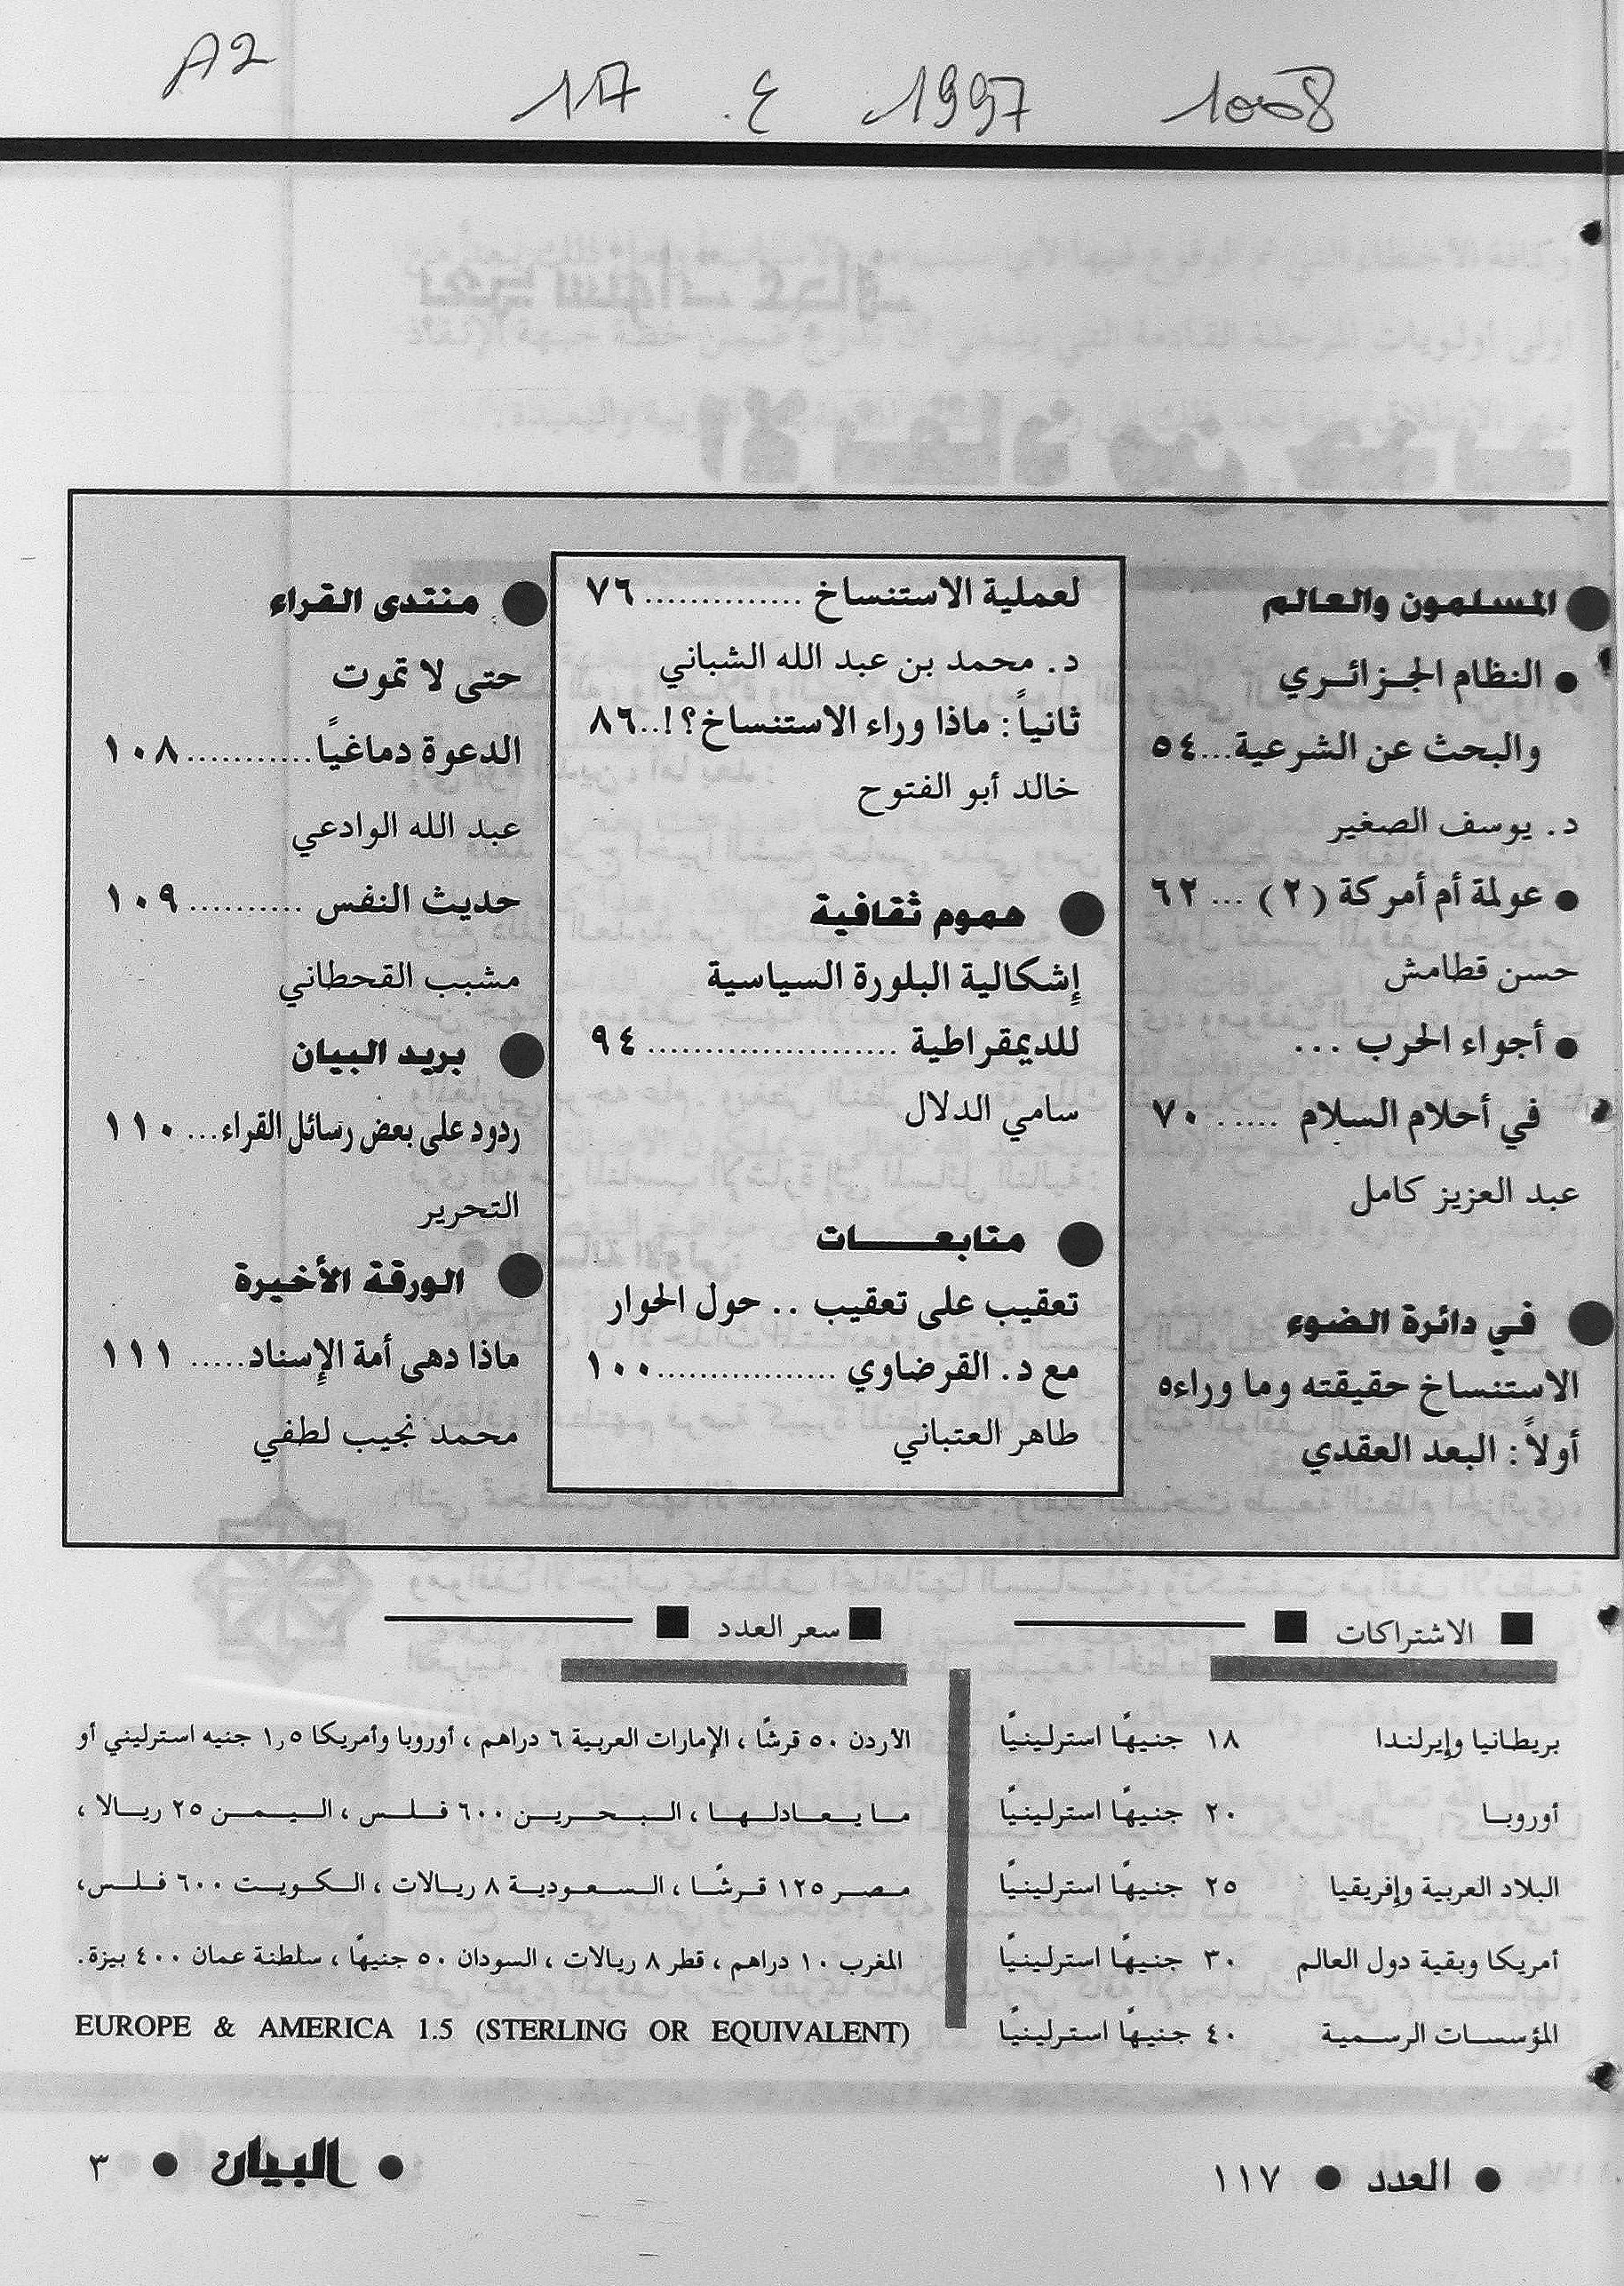 A2
117 ع. 1997 1008
● المسلمون والعالم
● النظام الجزائري
والبحث عن الشرعية...٥٤
د. يوسف الصغير
● عولمة أم أمركة (٢) ... ٦٢
حسن قطامش
● أجواء الحرب ...
في أحلام السلام ...... ٧٠
عبد العزيز كامل
● في دائرة الضوء
الاستنساخ حقيقته وما وراءه
أولاً: البعد العقدي
لعملية الاستنساخ .............. ٧٦
د. محمد بن عبد الله الشباني
ثانياً: ماذا وراء الاستنساخ؟!..٨٦
خالد أبو الفتوح
● هموم ثقافية
إشكالية البلورة السياسية
للديمقراطية ...................... ٩٤
سامي الدلال
● متابعــــات
تعقيب على تعقيب .. حول الحوار
مع د. القرضاوي .................١٠٠
طاهر العتباني
● منتدى القراء
حتى لا تموت
الدعوة دماغيًا...........١٠٨
عبد الله الوادعي
حديث النفس ..........١٠٩
مشبب القحطاني
● بريد البيان
ردود على بعض رسائل القراء...١١٠
التحرير
● الورقة الأخيرة
ماذا دهى أمة الإسناد..... ١١١
محمد نجيب لطفي
■ الاشتراكات ■
بريطانيا وإيرلندا ١٨ جنيهًا استرلينيًا
أوروبــا ٢٠ جنيهًا استرلينيًا
البلاد العربية وإفريقيا ٢٥ جنيهًا استرلينيًا
أمريكا وبقية دول العالم ٣٠ جنيهًا استرلينيًا
المؤسسات الرسـمية ٤٠ جنيهًا استرلينيًا
■ سعر العدد ■
الأردن ٥٠ قرشًا ، الإمارات العربية ٦ دراهم ، أوروبا وأمريكا ١,٥ جنيه استرليني أو
ما يـعـادلـهـا ، الـبـحـريـن ٦٠٠ فـلـس ، الـيـمـن ٢٥ ريـالا ،
مـصـر ١٢٥ قـرشًـا ، الـسـعـوديـة ٨ ريـالات ، الـكـويـت ٦٠٠ فـلـس،
المغرب ١٠ دراهم ، قطر ٨ ريالات ، السودان ٥٠ جنيهًا ، سلطنة عمان ٤٠٠ بيزة.
EUROPE & AMERICA 1.5 (STERLING OR EQUIVALENT)
● العدد ● ١١٧
● البيان ● ٣